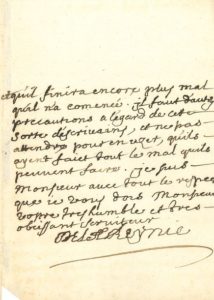 et quil finira encore plus mal
quil n'a comencé. Il faut d'autres
precautions a legard de cette
sorte descrivains, et ne pas
attendre pour en uzer, quils
ayent faict tout le mal quils
peuvent faire. Je suis
Monsieur avec tout le respect
que je vous dois Monsieur
vostre tres humble et tres
obeissant serviteur
De La Reynie